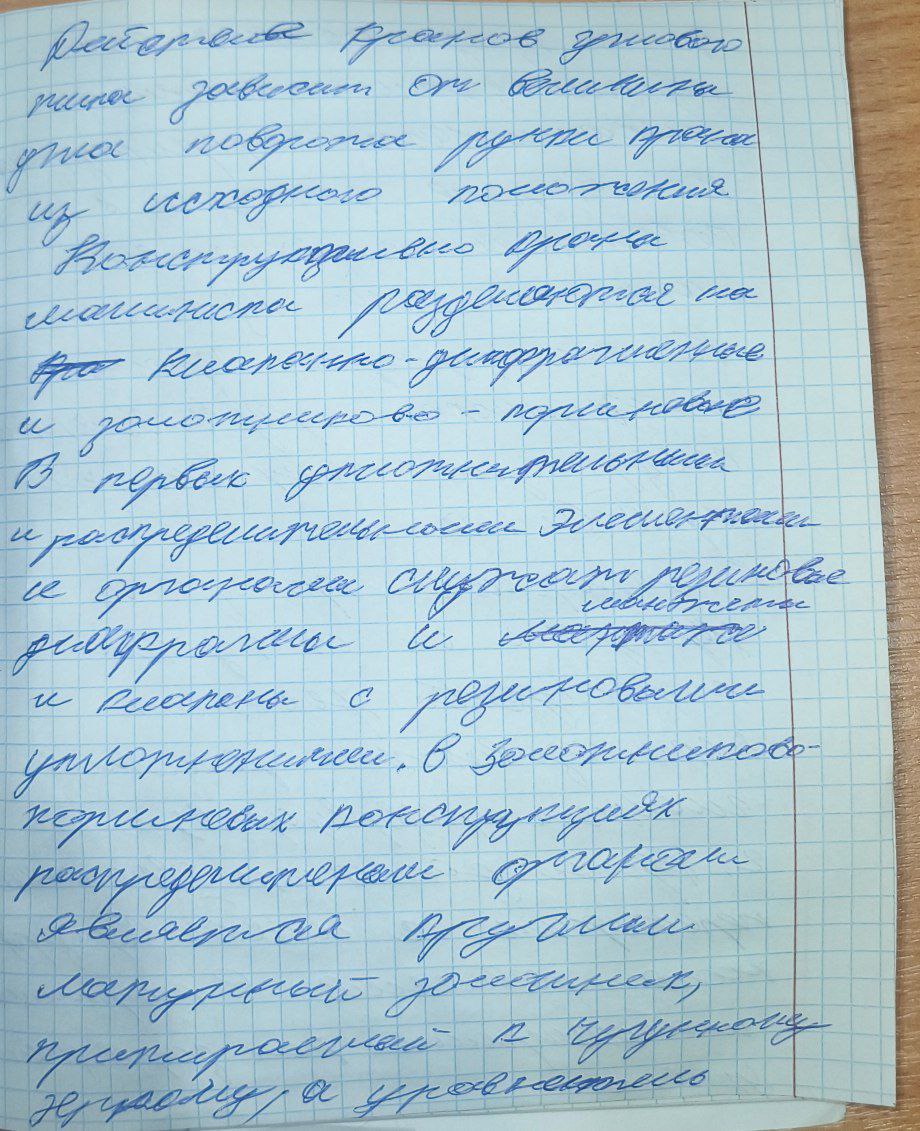 кранов
типа зависит от величины
угла поворота ручки крана
из исходного положения
Конструктивно краны
машиниста разделяются на
клапанно-диафрагменные
и золотниково-поршневые
В первых уплотнительными
и распределительными элементами
и органами служат резиновые
диафрагмы и манжеты
и клапаны с резиновыми
уплотнениями. В золотниково-
поршневых конструкциях
органом
является круглый
латунный золотник,
притираемый к чугунному
зеркалу, а уравнитель